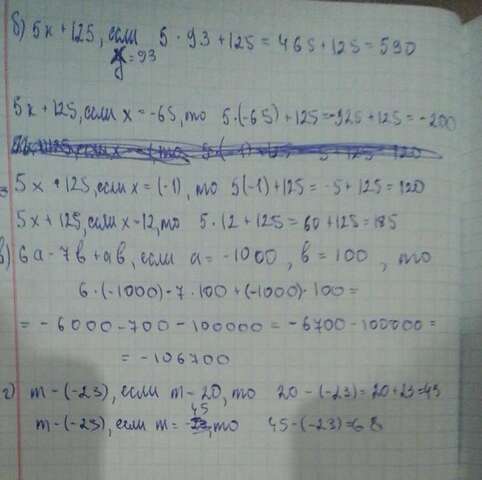 б) 5x + 125, если 5 · 93 + 125 = 465 + 125 = 590
y = 93
5x + 125, если x = -65, то 5·(-65) + 125 = -325 + 125 = -200
5x + 125, если x = (-1), то 5(-1) + 125 = -5 + 125 = 120
5x + 125, если x - 12, то 5 · 12 + 125 = 60 + 125 = 185
в) 6a - 7b + ab, если a = -1000, b = 100, то
6·(-1000) - 7·100 + (-1000)·100 =
= -6000 - 700 - 100000 = -6700 - 100000 =
= -106700
г) m - (-23), если m - 20, то 20 - (-23) = 20 + 23 = 43
45
m - (-23), если m = , то 45 - (-23) = 68